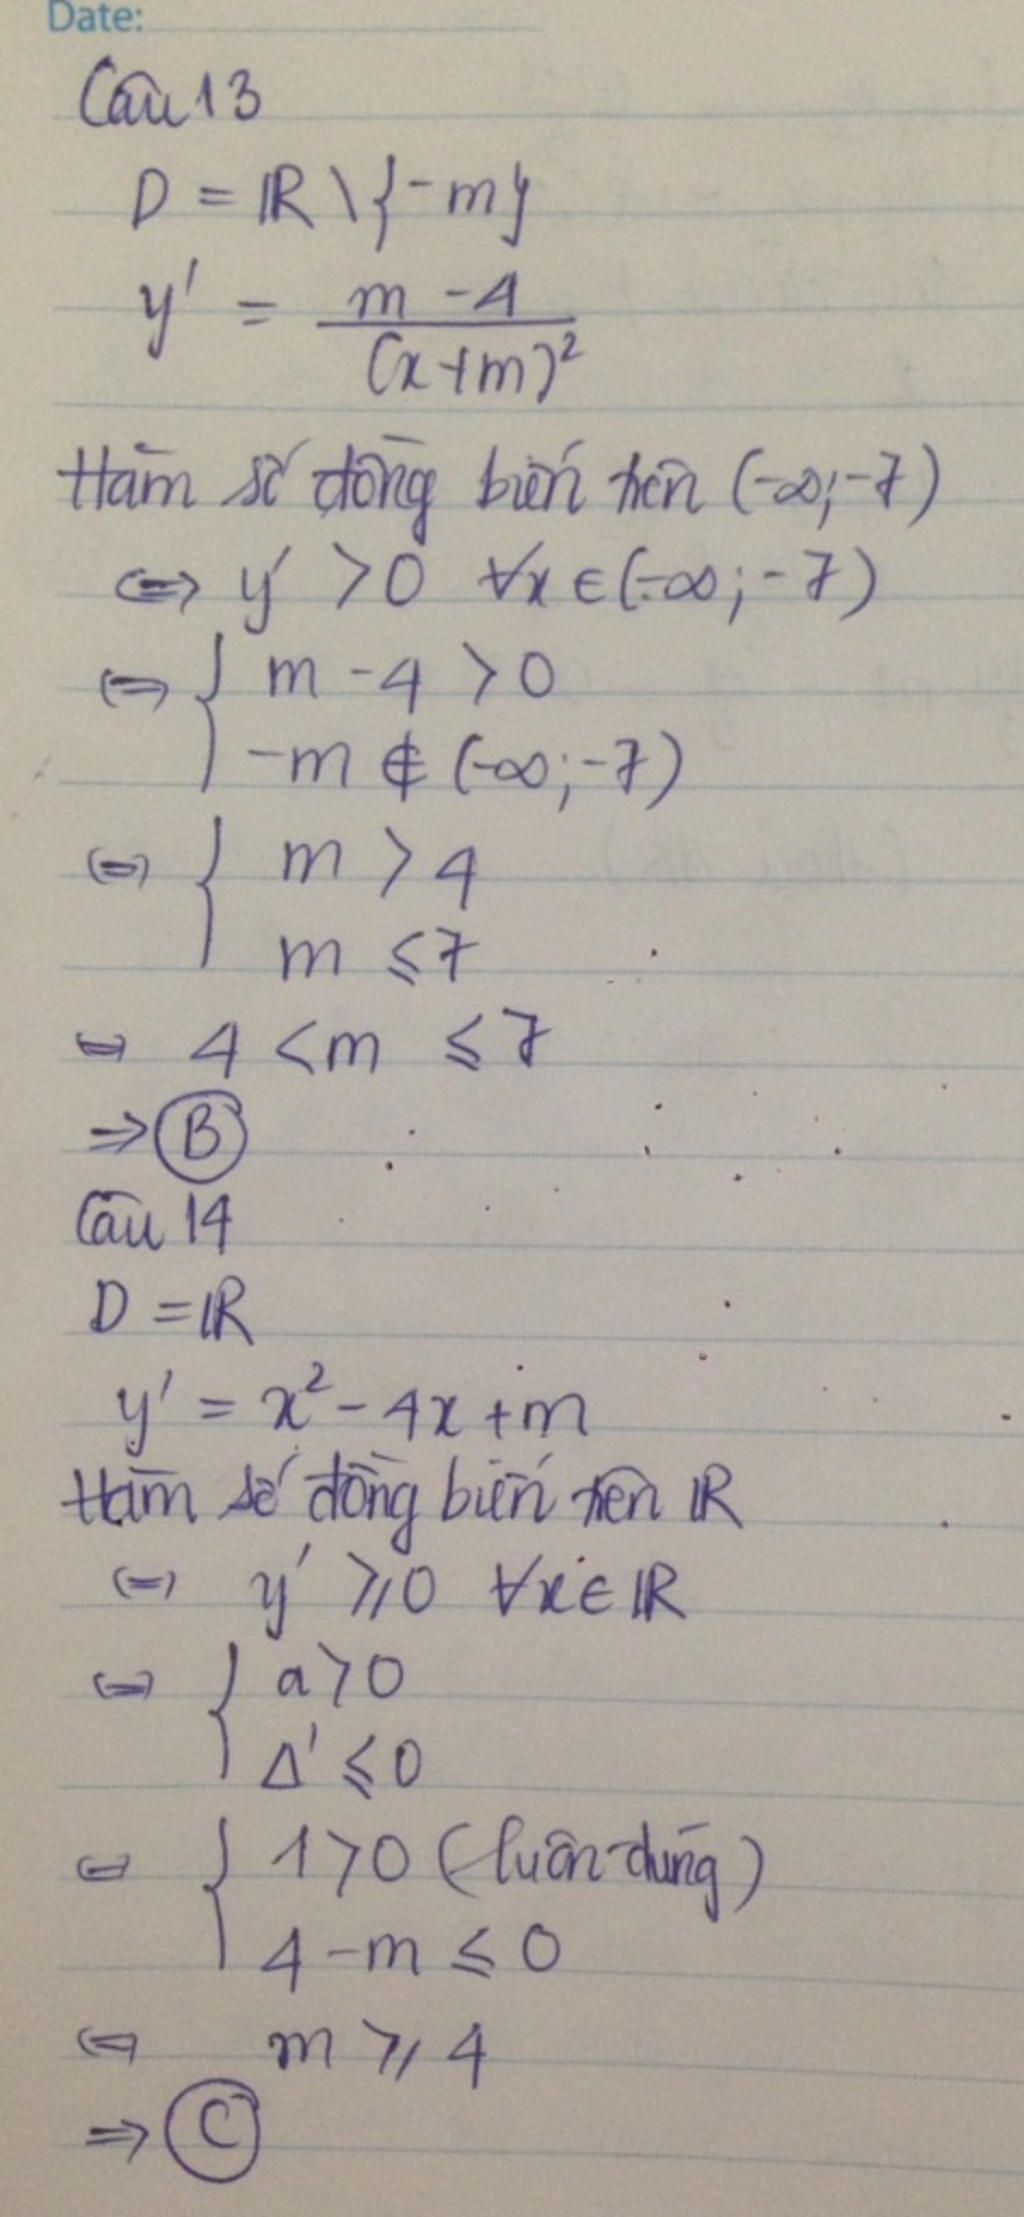 Date:
Câu 13
D = ℝ \ {-m}
y' = \frac{m - 4}{(x+m)^2}
Hàm số đồng biến trên (-∞; -7)
⇔ y' > 0 ∀x ∈ (-∞; -7)
⇔ { m - 4 > 0
-m ∉ (-∞; -7)
⇔ { m > 4
m ≤ 7
⇔ 4 < m ≤ 7
⇒ Ⓑ
Câu 14
D = ℝ
y' = x² - 4x + m
Hàm số đồng biến trên ℝ
⇔ y' ⩾ 0 ∀x ∈ ℝ
⇔ { a > 0
Δ' ≤ 0
⇔ { 1 > 0 (luôn đúng)
4 - m ≤ 0
⇔ m ⩾ 4
⇒ Ⓒ